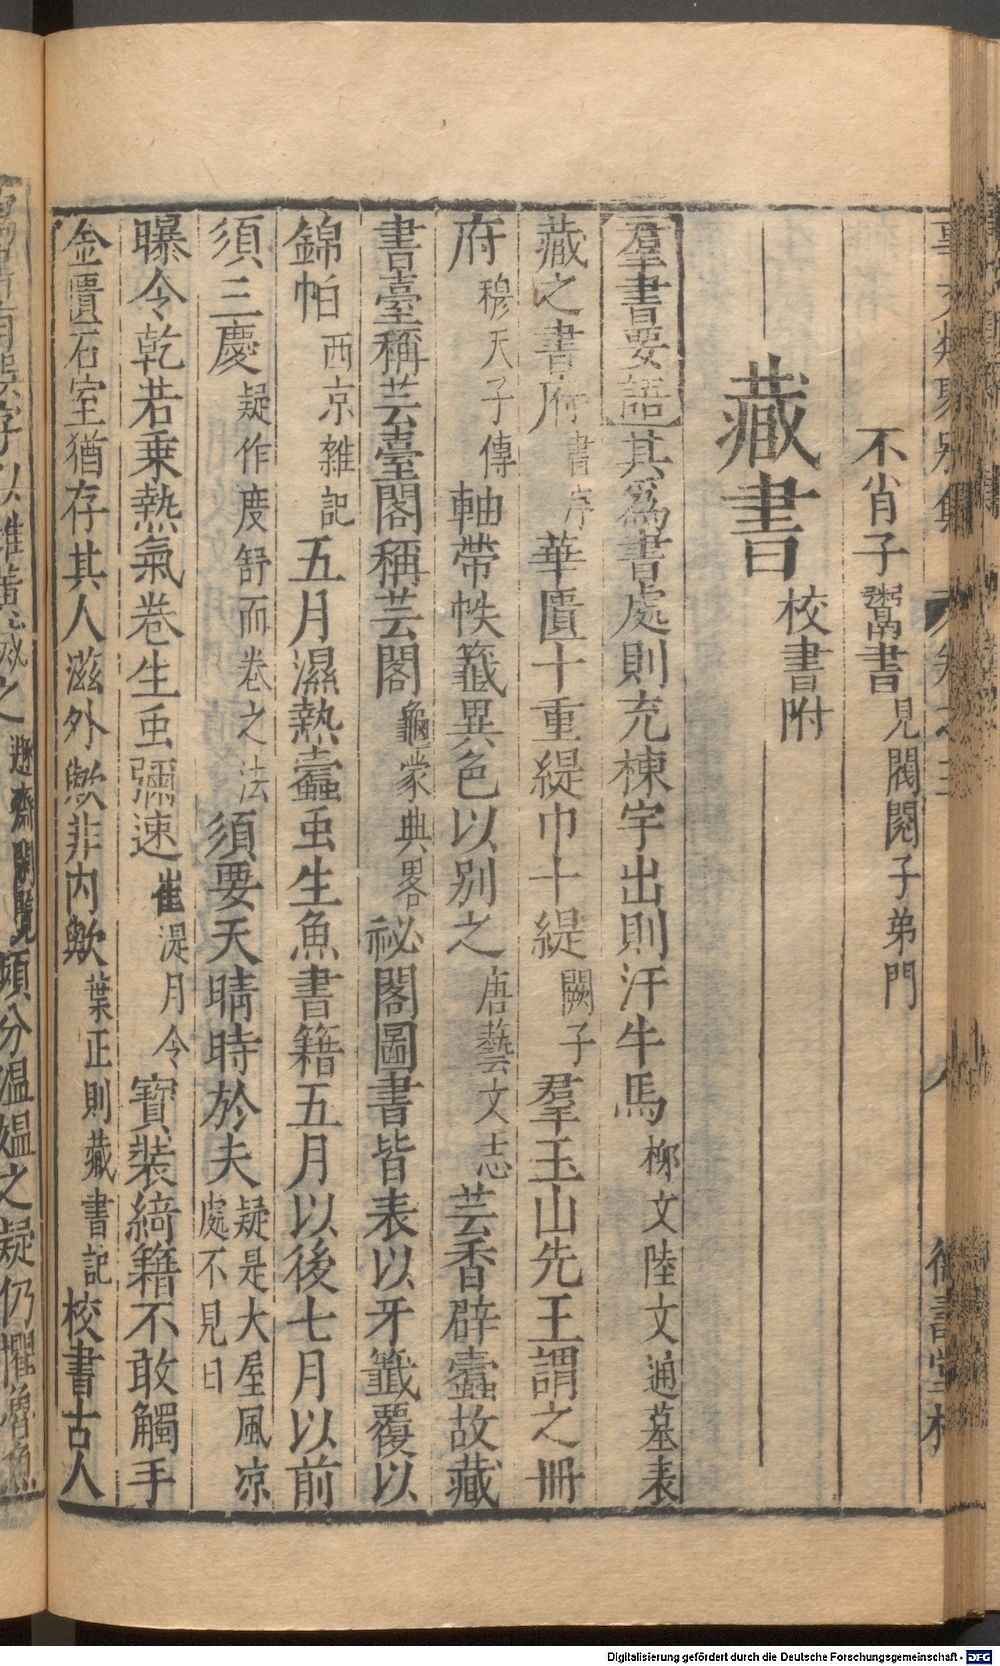 不肖子鬻書見閥閱子弟門
藏書校書附
羣書要語其爲書處則充棟宇出則汗牛馬柳文陸文通墓表
藏之書府書序華匱十重緹巾十緹闕子羣玉山先王謂之冊
府穆天子傳軸帶帙籤異色以別之唐藝文志芸香辟蠹故藏
書臺稱芸臺閣稱芸閣龜蒙典畧祕閣圖書皆表以牙籤覆以
錦帕西京雜記五月濕熱蠹虫生魚書籍五月以後七月以前
須三慶疑作度舒而卷之法須要天晴時於夫疑是大屋風凉處不見日
曝令乾若乗熱氣卷生虫彌速崔湜月令寶裝綺籍不敢觸手
金匱石室猶存其人滋外歟非内歟葉正則藏書記校書古人
之遯齋閑覽頻分温媼之疑仍懼魯魚
Digitalisierung gefördert durch die Deutsche Forschungsgemeinschaft - DFG